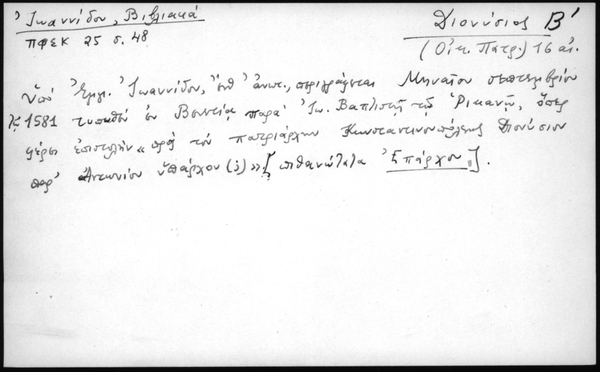 Ἰωαννίδου, Βιβλιακά
ΠΦΣΚ 25 σ. 48
Διονύσιος Β΄
(Οἰκ. Πατρ.) 16 αἰ.
Ὑπό Ἐμμ. Ἰωαννίδου, ἔνθ᾽ ἄνωτ., περιγράφεται Μηναῖον Σεπτεμβρίου
1581 τυπωθέν ἐν Βενετίᾳ παρά Ἰω. Βαπτιστῇ τῷ ὅπερ
φέρει ἐπιστολήν «πρός τόν πατριάρχην Κωνσταντινουπόλεως Διονύσιον
παρ᾽ Ἀντωνίου ὑπάρχου (;)» [πιθανώτατα Ἐπάρχου].